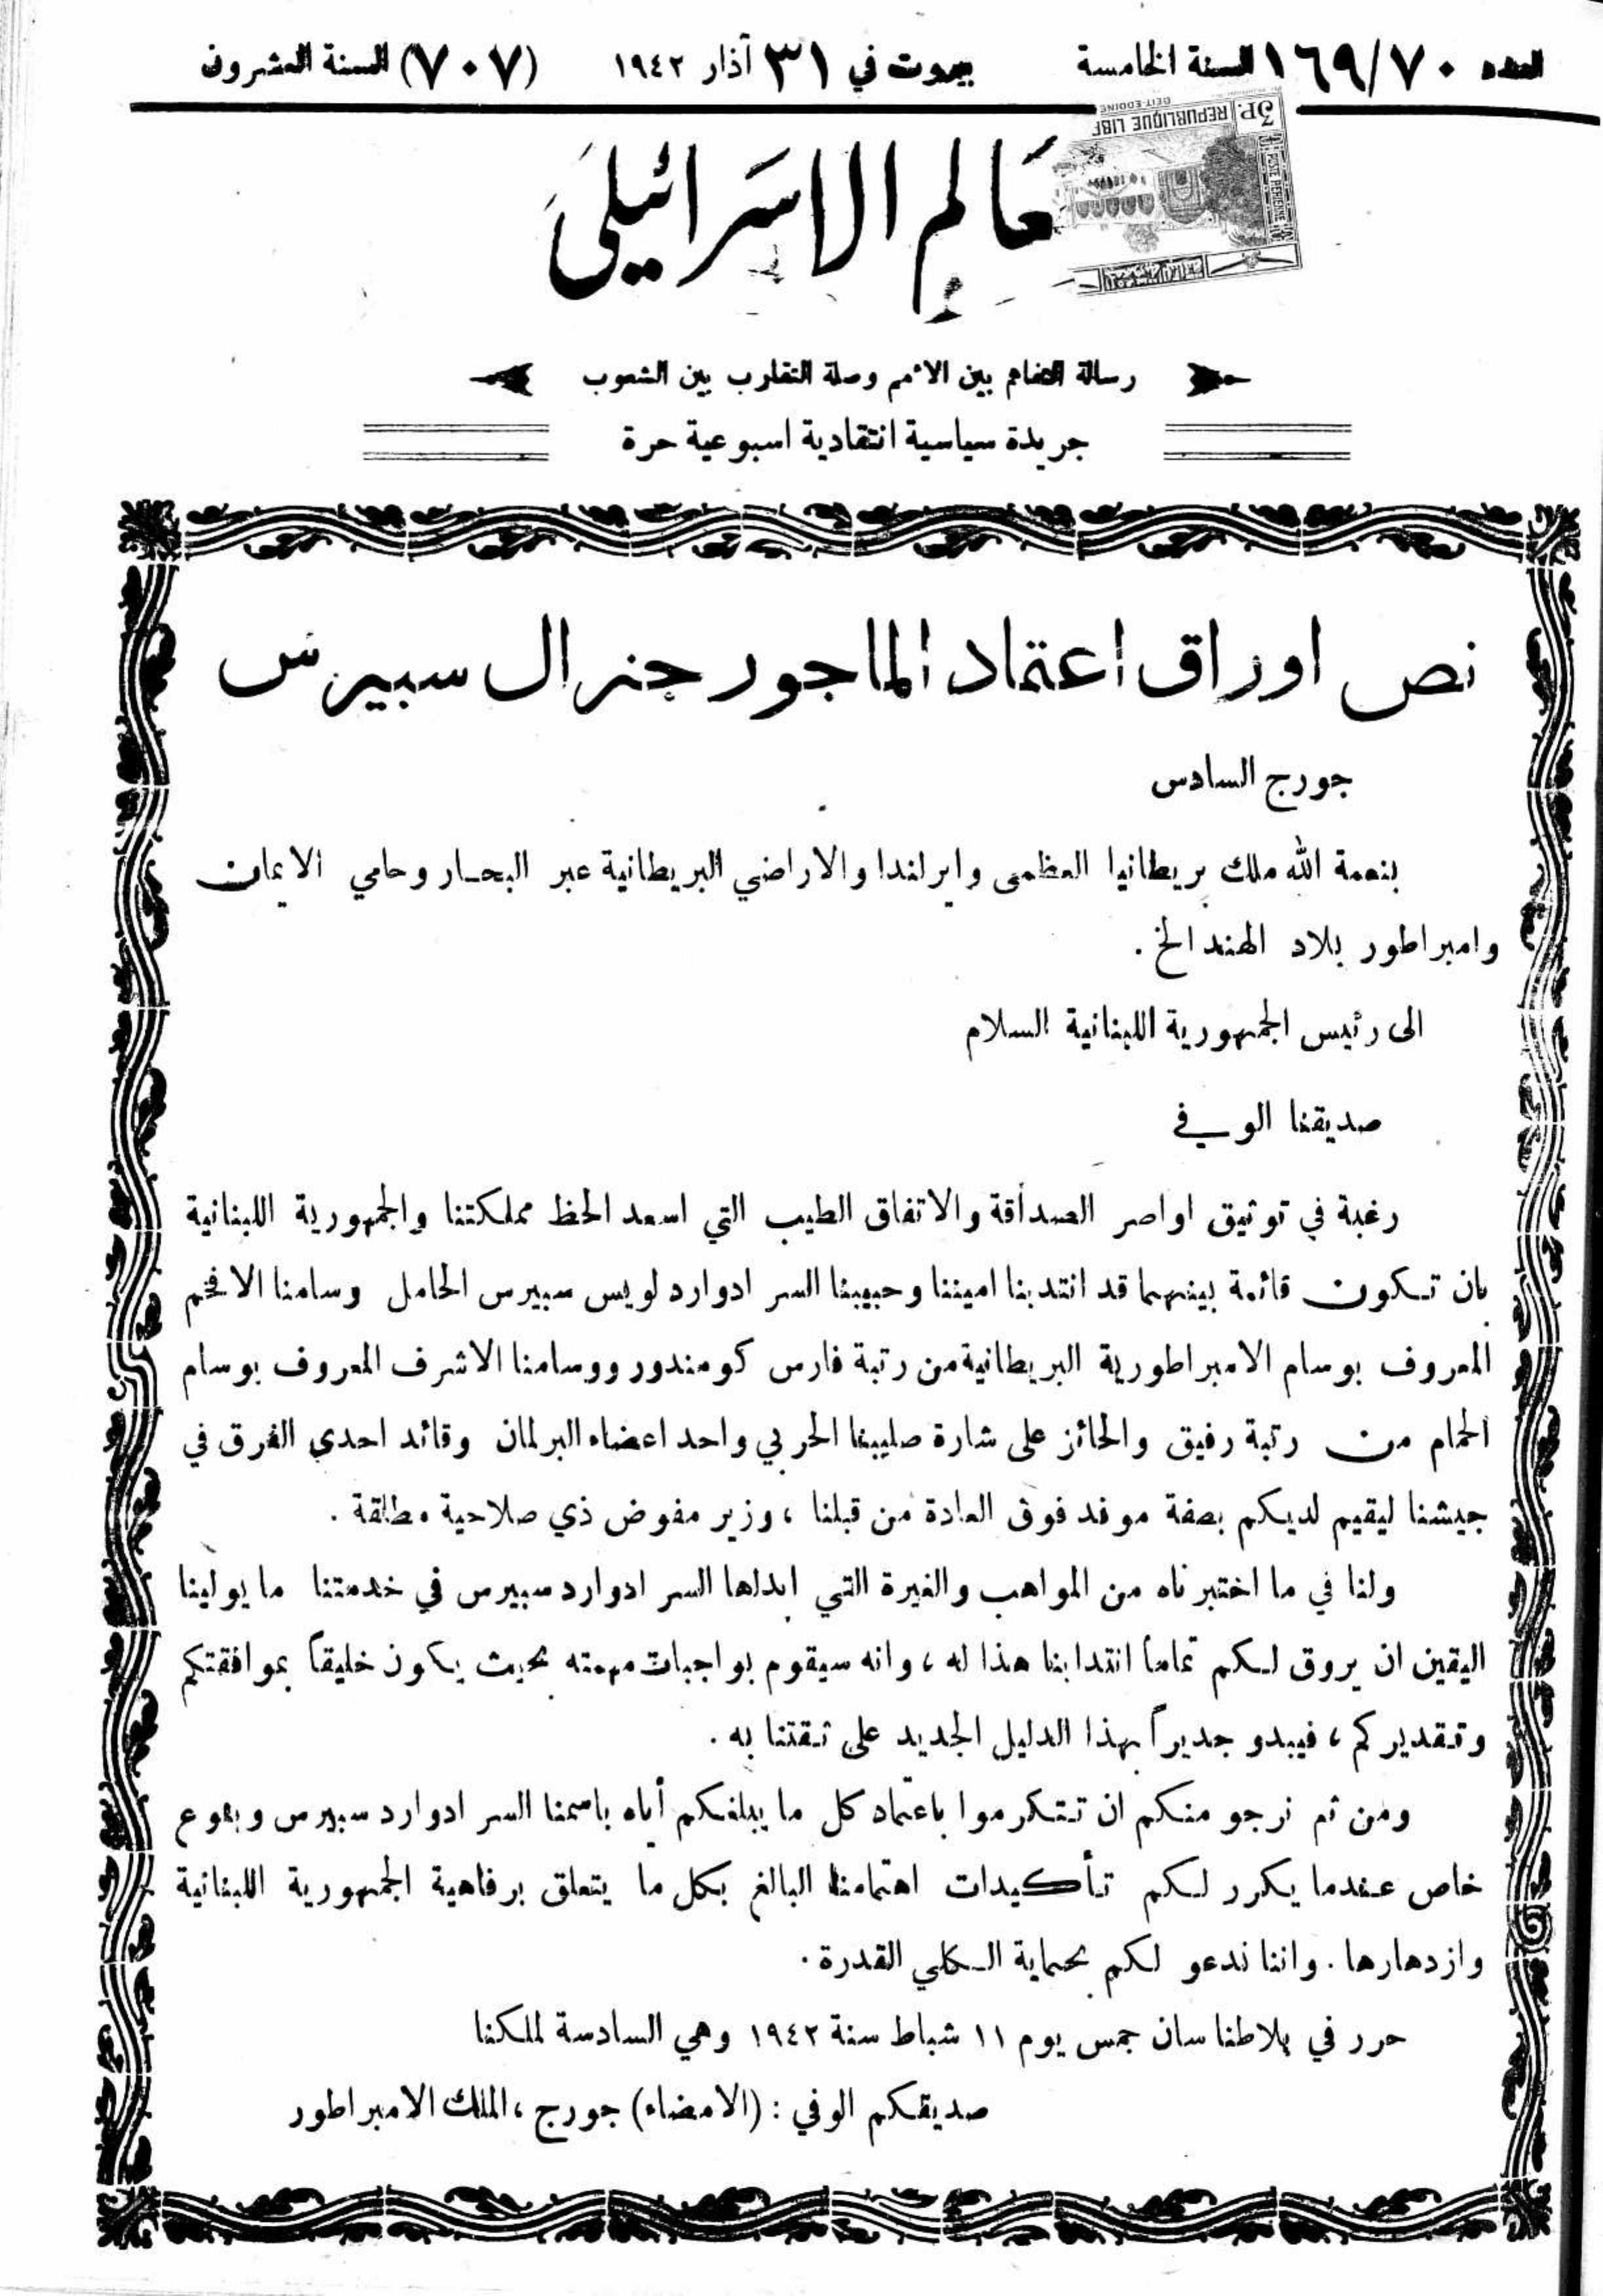 العدد ١٦٩/٧٠ السنة الخامسة بيروت في ٣١ آذار ١٩٤٢ (٧٠٧) السنة العشرون
3P. REPUBLIQUE LIB
BEIT-EDDINE
POSTE AERIENNE
عَالم الاسَرائيلي
رسالة التفاهم بين الامم وصلة التقارب بين الشعوب
جريدة سياسية انتقادية اسبوعية حرة
نص اوراق اعتماد الماجور جنرال سبيرس
جورج السادس
بنعمة الله ملك بريطانيا العظمى وايرلندا والاراضي البريطانية عبر البحار وحامي الايمان
وامبراطور بلاد الهند الخ .
الى رئيس الجمهورية اللبنانية السلام
صديقنا الوفي
رغبة في توثيق اواصر الصداقة والاتفاق الطيب التي اسعد الحظ مملكتنا والجمهورية اللبنانية
بان تكون قائمة بينهما قد انتدبنا اميننا وحبيبنا السر ادوارد لويس سبيرس الحامل وسامنا الافخم
المعروف بوسام الامبراطورية البريطانية من رتبة فارس كومندور ووسامنا الاشرف المعروف بوسام
الحمام من رتبة رفيق والحائز على شارة صليبنا الحربي واحد اعضاء البرلمان وقائد احدى الفرق في
جيشنا ليقيم لديكم بصفة موفد فوق العادة من قبلنا ، وزير مفوض ذي صلاحية مطلقة .
ولنا في ما اختبرناه من المواهب والغيرة التي ابداها السر ادوارد سبيرس في خدمتنا ما يولينا
اليقين ان يروق لكم تماماً انتدابنا هذا له ، وانه سيقوم بواجبات مهمته بحيث يكون خليقاً بموافقتكم
وتقديركم ، فيبدو جديراً بهذا الدليل الجديد على ثقتنا به .
ومن ثم نرجو منكم ان تتكرموا باعتماد كل ما يبلغكم أياه باسمنا السر ادوارد سبيرس وبنوع
خاص عندما يكرر لكم تأكيدات اهتمامنا البالغ بكل ما يتعلق برفاهية الجمهورية اللبنانية
وازدهارها . واننا ندعو لكم بحماية الكلي القدرة .
حرر في بلاطنا سان جمس يوم ١١ شباط سنة ١٩٤٢ وهي السادسة لملكنا
صديقكم الوفي : (الامضاء) جورج ، الملك الامبراطور